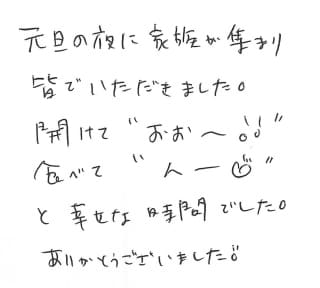 元旦の夜に家族が集まり
皆でいただきました。
開けて“おお〜!!”
食べて“んー♡”
と幸せな時間でした。
ありがとうございました!!